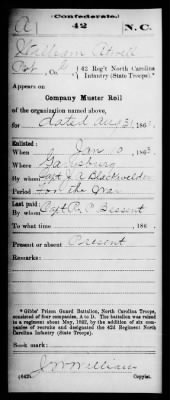 (Confederate.)
A 42 N.C.
William Atwell
Pvt, Co. , 42 Reg't North Carolina
Infantry (State Troops).*
Appears on
Company Muster Roll
of the organization named above,
for dated Aug 31, 186
Enlisted:
When Jan , 186
Where Garysburg
By whom Capt J. A. Blackwelder
Period For the War
Last paid:
By whom Capt R. P. Bessent
To what time , 186
Present or absent Present
Remarks:
*Gibbs' Prison Guard Battalion, North Carolina Troops,
consisted of four companies, A to D. The battalion was raised
to a regiment about May, 1862, by the addition of six com-
panies of recruits and designated the 42d Regiment North Ca-
rolina Infantry (State Troops).
Book mark:
J W William
(642) Copyist.